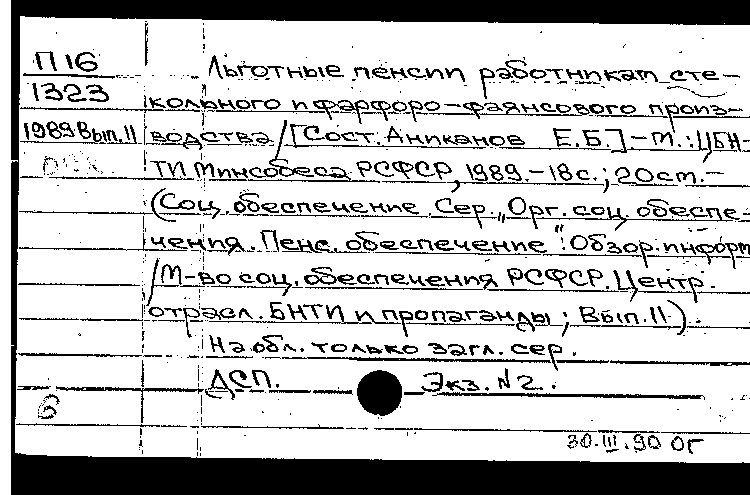 П16
1323
1989 Вып.11
Льготные пенсии работникам сте-
кольного и фарфоро-фаянсового произ-
водства/[Сост. Аниканов Е.Б.]-М.:ЦБН-
ТИ Минсобеса РСФСР, 1989.-18с.; 20см.-
(Соц. обеспечение. Сер. „Орг. соц. обеспе-
чения. Пенс. обеспечение": Обзор. информ.
/М-во соц. обеспечения РСФСР. Центр.
отрасл. БНТИ и пропаганды; Вып.11).
На обл. только загл. сер.
ДСП. Экз. N2.
б
30.III.90 ОГ